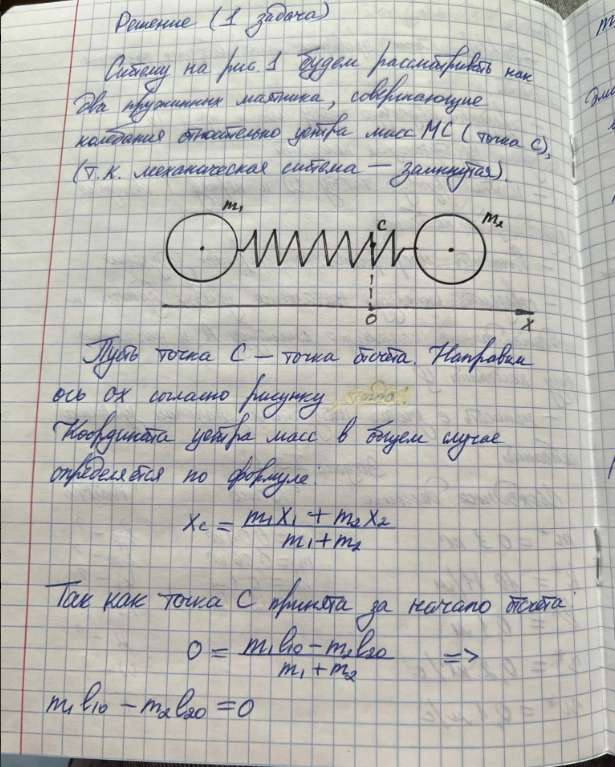 Решение (1 задача)
Систему на рис. 1 будем рассматривать как
два пружинных маятника, совершающие
колебания относительно центра масс МС (точка С),
(т.к. механическая система — замкнутая).
m₁
C
m₂
0
x
Пусть точка С — точка отсчета. Направим
ось ох согласно рисунку
Координата центра масс в общем случае
определяется по формуле:
Xc = (m₁X₁ + m₂X₂) / (m₁ + m₂)
Так как точка С принята за начало отсчета
0 = (m₁l₁₀ − m₂l₂₀) / (m₁ + m₂) =>
m₁l₁₀ − m₂l₂₀ = 0